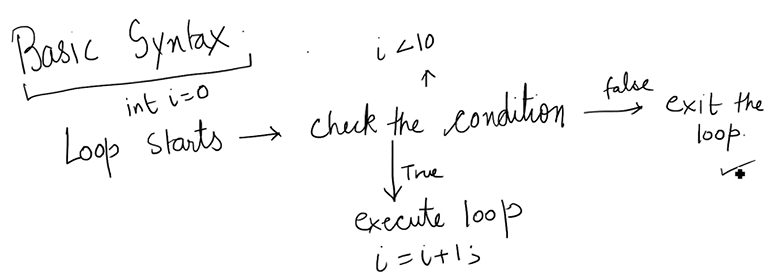 Basic Syntax.
i < 10
int i=0
Loop starts → check the condition → false exit the loop.
True
execute loop
i = i+1;